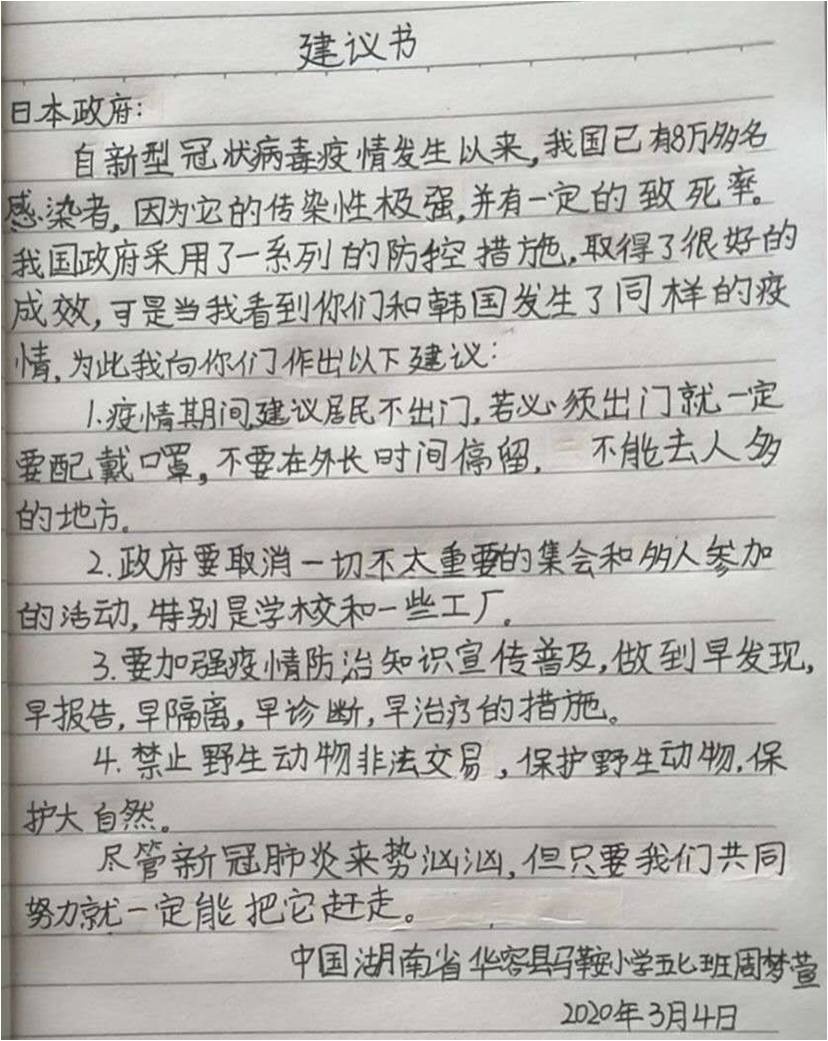 建议书
日本政府:
自新型冠状病毒疫情发生以来,我国已有8万多名
感染者,因为它的传染性极强,并有一定的致死率。
我国政府采用了一系列的防控措施,取得了很好的
成效,可是当我看到你们和韩国发生了同样的疫
情,为此我向你们作出以下建议:
1.疫情期间建议居民不出门,若必须出门就一定
要配戴口罩,不要在外长时间停留, 不能去人多
的地方。
2.政府要取消一切不太重要的集会和多人参加
的活动,特别是学校和一些工厂。
3.要加强疫情防治知识宣传普及,做到早发现,
早报告,早隔离,早诊断,早治疗的措施。
4.禁止野生动物非法交易,保护野生动物,保
护大自然。
尽管新冠肺炎来势汹汹,但只要我们共同
努力就一定能把它赶走。
中国湖南省华容县马鞍小学五七班周梦萱
2020年3月4日